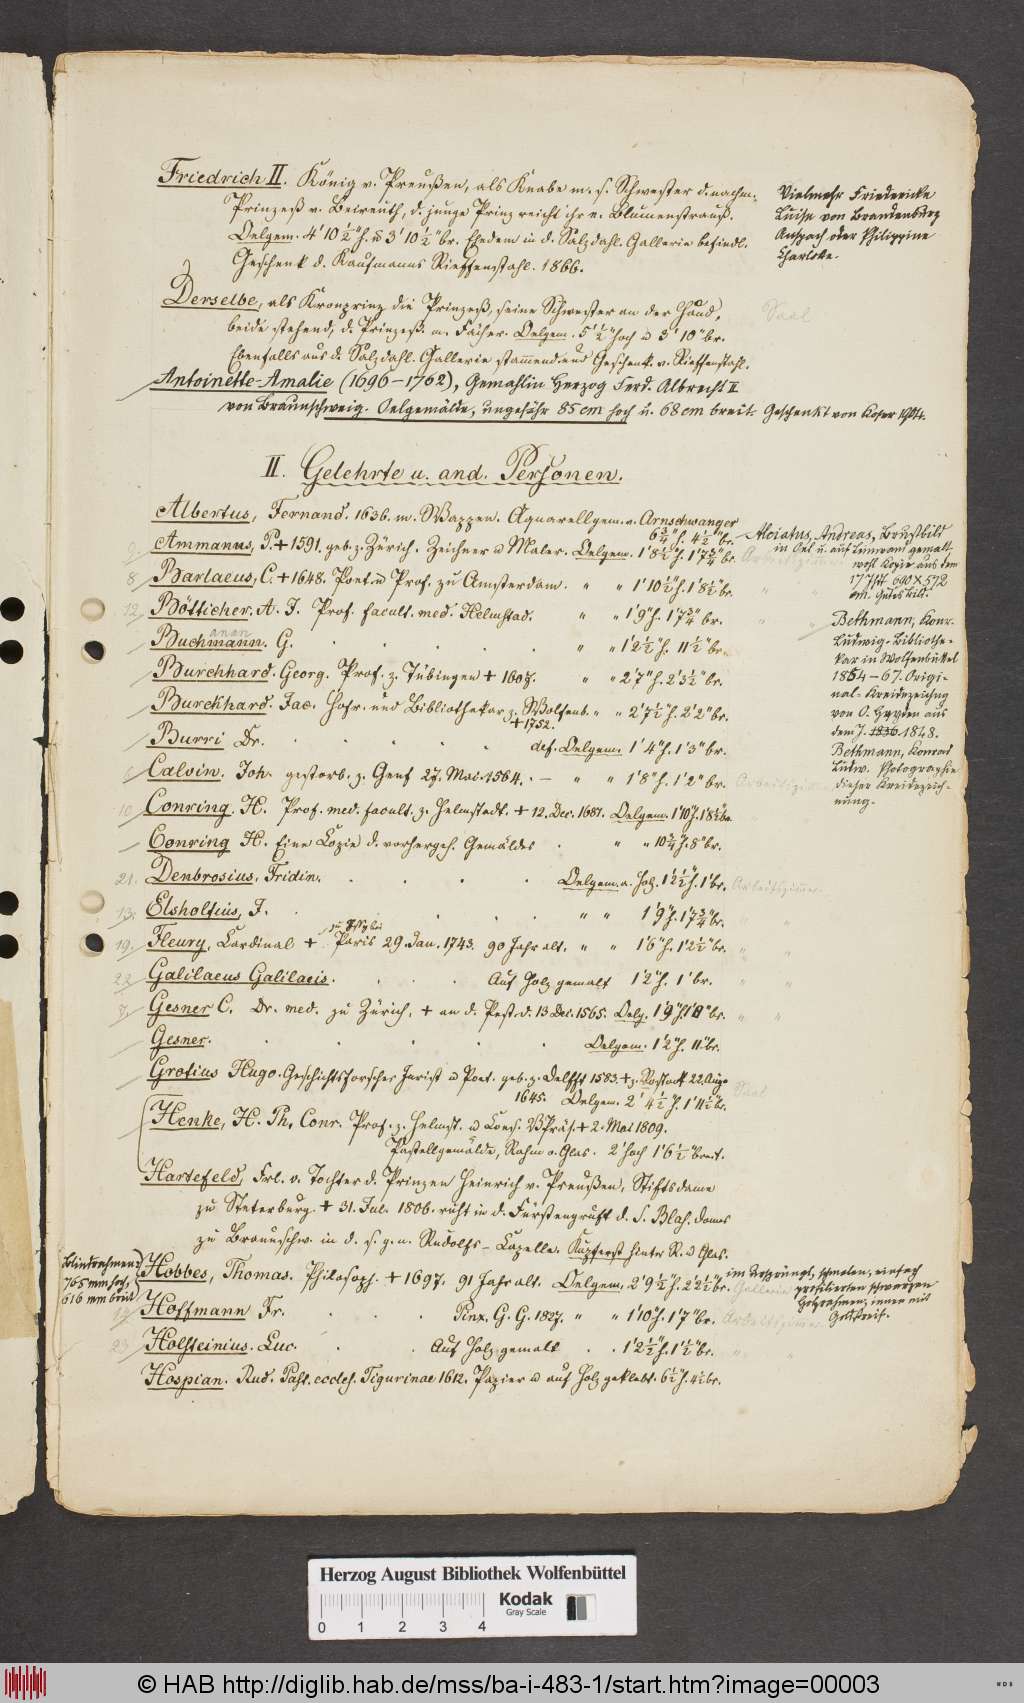 Friedrich II. König v. Preußen, als Knabe m. s. Schwester d. nachm.
Prinzeß v. Beireuth, d. junge Prinz reicht ihr e. Blumenstrauß.
Oelgem. 4' 10 ½" h. u 3' 10 ½" br. Ehedem in d. Salzdahl. Gallerie befindl.
Geschenk d. Kaufmanns Rieffenstahl. 1866.
Vielmehr Friedericke
Luise von Brandenburg
Anspach oder Philippine
Charlotte.
Derselbe, als Kronprinz die Prinzeß, seine Schwester an der Hand,
beide stehend, d. Prinzeß. m. Fächer. Oelgem. 5' ½" hoch u 3' 10" br.
Saal
Ebenfalls aus d. Salzdahl. Gallerie stammend und Geschenk v. Rieffenstahl.
Antoinette-Amalie (1696-1762), Gemahlin Herzog Ferd. Albrecht II
von Braunschweig. Oelgemälde, ungefähr 85 cm hoch u. 68 cm breit. Geschenkt von Koser 1904.
II. Gelehrte u. and. Personen.
Albertus, Fernand. 1636. m. Wappen. Aquarellgem. v. Arnschwanger
6 ¾" h. 4 ½" br.
Ammanus, P. + 1591. geb. z. Zürich. Zeichner u Maler. Oelgem. 1' 8 ½" h. 1' 7 ¾" br.
8 Barlaeus, C. + 1648. Poet u Prof. zu Amsterdam. " " 1' 10 ½" h. 1' 8 ½" br.
12 Bötticher, A. J. Prof. facult. med. Helmstad. " " 1' 9" h. 1' 7 ¾" br.
Buchmann. G. " " 1' 2 ½" h. 11 ½" br.
anan
Burckhard. Georg. Prof. z. Tübingen + 1607. " " 2' 7" h. 2' 3 ½" br.
Burckhard. Jac. Hofr. und Bibliothekar z. Wolfenb. " " 2' 7 ½" h. 2' 2" br.
+ 1752.
Burri Dr. def. Oelgem. 1' 4" h. 1' 3" br.
Calvin. Joh. gestorb. z. Genf 27. Mai. 1564. - " " 1' 8" h. 1' 2" br. Arbeitszimmer
10 Conring. H. Prof. med. facult. z. Helmstadt. + 12. Dec. 1681. Oelgem. 1' 10" h. 1' 8 ½" br.
Conring H. Eine Copie d. vorhergeh. Gemäldes " " 10 ¾" h. 8" br.
21. Denbrosius. Fridin. Oelgem. a. Holz. 1' 2 ½" h. 1' br. Arbeitszimmer
13. Elsholtius, J. " " 1' 9" h. 1' 7 ¾" br.
19. Fleury, Cardinal + Paris 29. Jan. 1743. 90 Jahr alt. " " 1' 6" h. 1' 2 ½" br.
zu Issy bei
22 Galilaeus Galilaeis. Auf Holz gemalt 1' 2" h. 1' br.
Gesner C. Dr. med. zu Zürich, + an d. Pest. d. 13 Dec. 1565. Oelg. 1' 9" h. 1' 8" br.
Gesner. Oelgem. 1' 2" h. 11" br.
Grotius Hugo. Geschichtsforscher Jurist u Poet. geb. z. Delfft 1583. + z. Rostock 22. Aug.
1645. Oelgem. 2' 4 ½" h. 1' 11 ½" br.
Saal
Henke, H. Ph. Conr. Prof. z. Helmst. u Cons. VPräs. + 2. Mai 1809.
Pastellgemälde, Rahm o. Glas. 2' hoch 1' 6 ½" breit.
Hartefeld, Frl. v. Tochter d. Prinzen Heinrich v. Preußen, Stiftsdame
zu Steterburg. + 31. Jul. 1806. ruht in d. Fürstengruft d. S. Blas. Domes
zu Braunschw. in d. s. g. n. Rudolfs-Capelle. Kupferst. hinter R. u Glas.
Hobbes, Thomas. Philosoph. + 1697. 91 Jahr alt. Oelgem. 2' 9 ½" h. 2' 2 ½" br. Gallerie
Blindrahmen:
765 mm hoch,
616 mm breit
im Ursprüngl., schmalen, einfach
profilierten schwarzen
Holzrahmen, innen mit
Goldkreif.
Hoffmann Fr. Pinx. G. G. 1827. " " 1' 10" h. 1' 7" br. Arbeitszimmer
23 Holsteinius. Luc. Auf Holz gemalt 1' 2 ½" h. 1' ½" br.
Hospian. Rud. Past. eccles. Tigurinae 1612. Papier u auf Holz geklebt. 6 ½" h. 4 ½ br.
Alciatus, Andreas, Brustbild
in Oel u. auf Leinwand gemalt
wohl Kopie aus dem
17 Jht 690 x 572
Bethmann, Konr.
Ludwig. Bibliothe-
kar in Wolfenbüttel
1854-67. Origi-
nal-Kreidezeichng
von O. Heyden aus
dem J. 1836. 1848.
Bethmann, Konrad
Ludw. Photographie
dieser Kreidezeich-
nung.
Herzog August Bibliothek Wolfenbüttel
0 1 2 3 4
Kodak
Gray Scale
© HAB http://diglib.hab.de/mss/ba-i-483-1/start.htm?image=00003